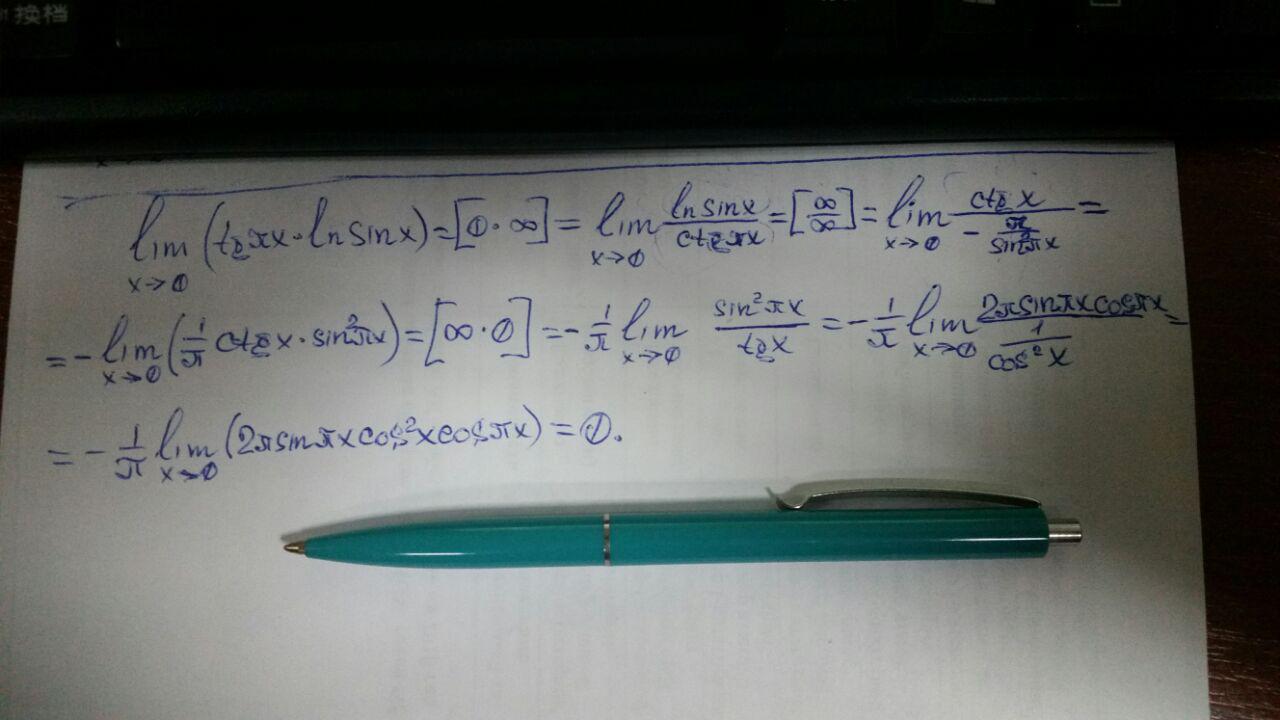 換档
lim x→0 (tg πx · ln sin x) = [0 · ∞] = lim x→0 ln sin x / ctg πx = [∞/∞] = lim x→0 ctg x / (- π / sin²πx) =
= - lim x→0 (1/π ctg x · sin²πx) = [∞ · 0] = - 1/π lim x→0 sin²πx / tg x = - 1/π lim x→0 2π sin πx cos πx / (1 / cos²x) =
= - 1/π lim x→0 (2π sin πx cos²x cos πx) = 0.